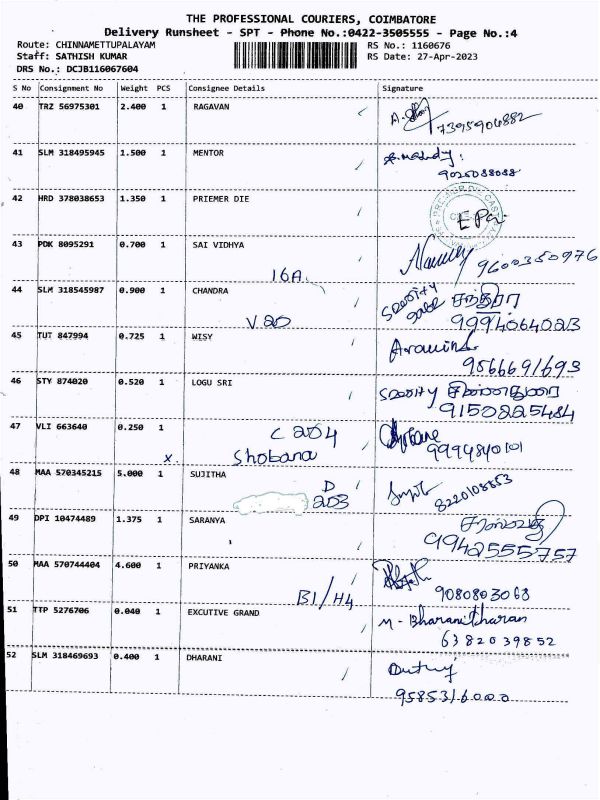 THE PROFESSIONAL COURIERS, COIMBATORE
Delivery Runsheet - SPT - Phone No.:0422-3505555 - Page No.:4
Route: CHINNAMETTUPALAYAM RS No.: 1160676
Staff: SATHISH KUMAR RS Date: 27-Apr-2023
DRS No.: DCJB116067604
S No Consignment No Weight PCS Consignee Details Signature
40 TRZ 56975301 2.400 1 RAGAVAN
7395904882
41 SLM 318495945 1.500 1 MENTOR
9026088088
42 HRD 378038653 1.350 1 PRIEMER DIE
43 PDK 8095291 0.700 1 SAI VIDHYA
9600350976
16A
44 SLM 318545987 0.900 1 CHANDRA சந்திரா
V.20 9994064023
45 TUT 847994 0.725 1 WISY Aravind
9566691693
46 STY 874020 0.520 1 LOGU SRI சின்னதுரை
9150225484
47 VLI 663640 0.250 1 C 204
x. Shobana 9994840101
48 MAA 570345215 5.000 1 SUJITHA
D 203 8220108853
49 DPI 10474489 1.375 1 SARANYA
9942555757
50 MAA 570744404 4.600 1 PRIYANKA
B1/H4 9080803063
51 TTP 5276706 0.040 1 EXCUTIVE GRAND M - Bharanitharan
6382039852
52 SLM 318469693 0.400 1 DHARANI
9585316000